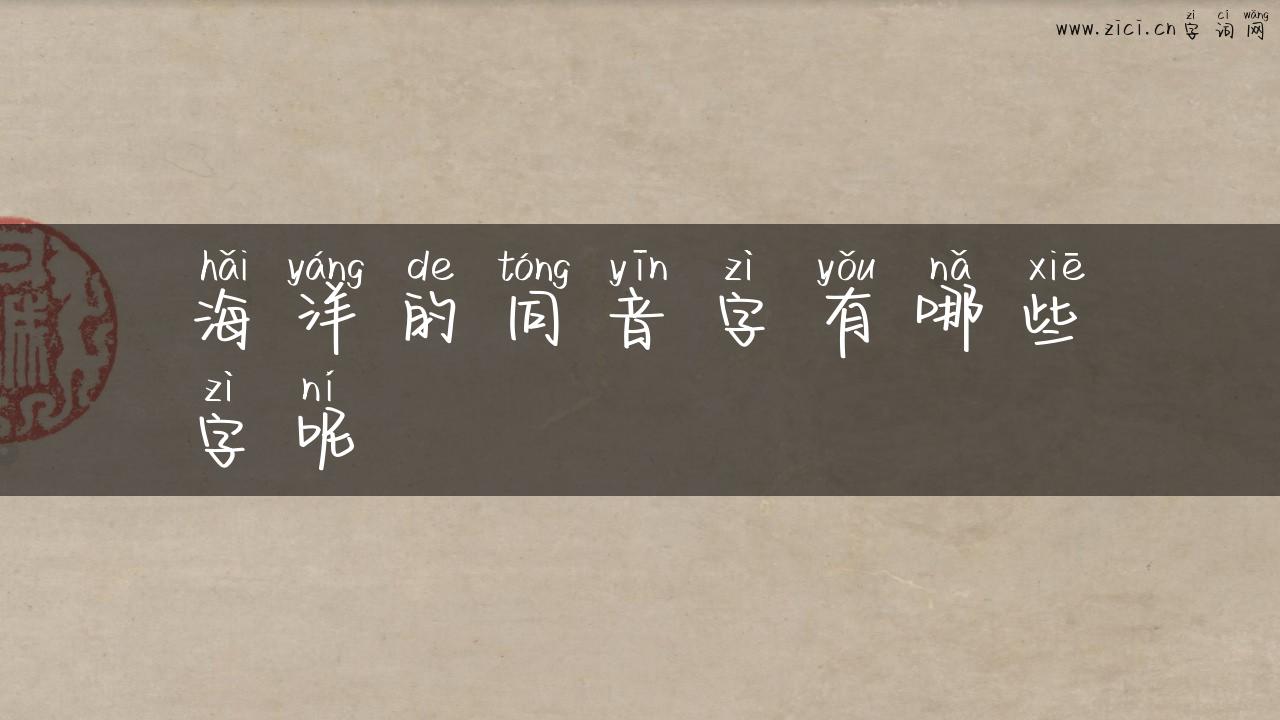 zì cí wǎng
www.zici.cn字词网
hǎi yáng de tóng yīn zì yǒu nǎ xiē
海洋的同音字有哪些
zì ní
字呢